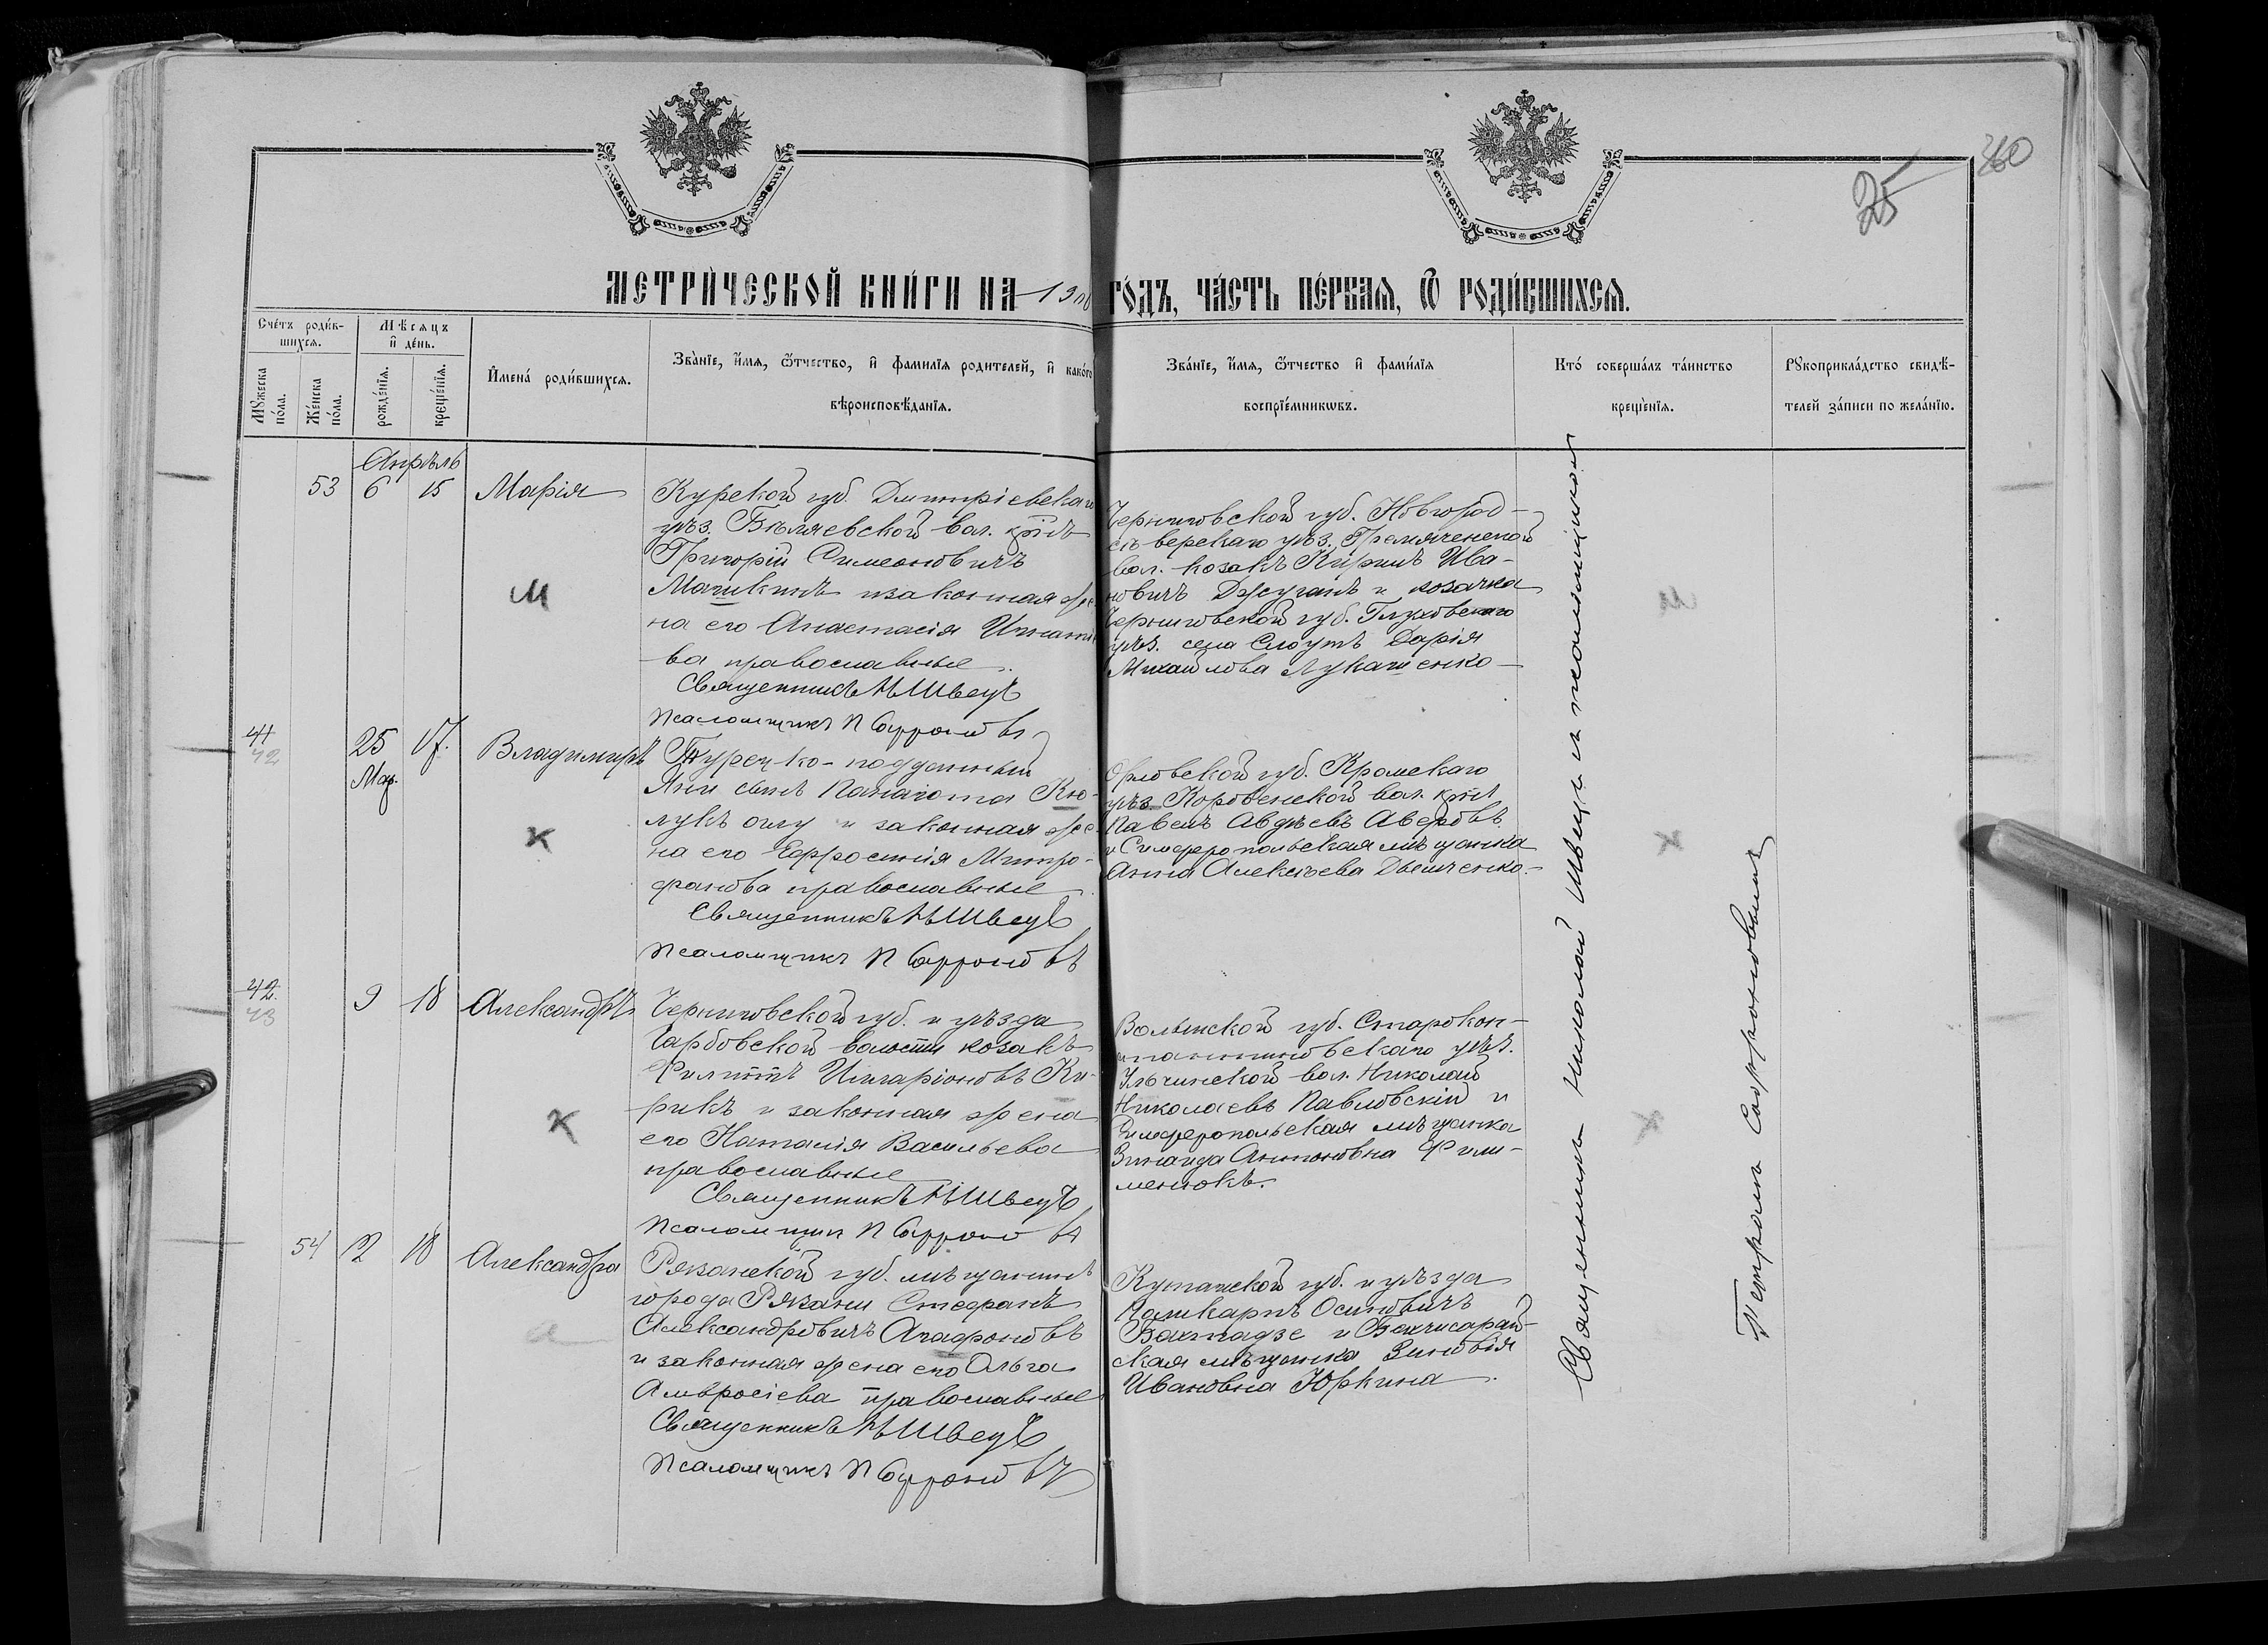 260
25
МЕТРИ́ЧЕСКОЙ КНИ́ГИ НА 19 ГО́ДЪ, ЧА́СТЬ ПЕ́РВАЯ, Ѿ РОДИ́ВШИХСЯ.
Сче́тъ роди́в-
шихся.
Мѣсяцъ
и҆ де́нь.
Мꙋжеска
по́ла.
Же́нска
по́ла.
рожде́нїя.
креще́нїя.
И҆мена́ роди́вшихся.
Зва́нїе, и҆́мя, ѻ҆́тчество, и҆ фамилїя родителей, и҆ како́гѡ
вѣроисповѣ́данїя.
Зва́нїе, и҆́мя, ѻ҆́тчество и҆ фами́лїя
воспрїе́мникѡвъ.
Кто́ соверша́лъ та́инство
креще́нїя.
Рꙋкоприкла́дство свидѣ́-
телей за́писи по жела́нїю.
Апрѣль
53 6 15 Марія
Курской губ. Дмитріевскаго
уѣз. Бѣляевской вол. кр҃нъ
Григорій Симеоновичъ
Машкинъ и законная же-
на его Анастасія
ва православные.
Священникъ Н Швецъ
Псаломщикъ П Софроновъ
Черниговской губ. Новгород-
сѣверскаго уѣз. Гремяченской
вол. козакъ Кирилъ Ива-
новичъ Джуганъ и козачка
Черниговской губ. Глуховскаго
уѣз. села Слоутъ Дарія
Михайлова Лукашенко
М
М
41
42
25 17. Владимиръ
Мар.
Турецко-подданный
Яни сынъ Панаiота Кю-
лукъ оглу и законная же-
на его Ефросинія Митро-
фанова православные
Священникъ Н Швецъ
Псаломщикъ П Софроновъ
Орловской губ. Кромскаго
уѣз. Коровенской вол. кр҃нъ
Павелъ Авдѣевъ
и Симферопольская мѣщанка
Анна Алексѣева
К
К
42.
43
9 18 Александръ
Черниговской губ. и уѣзда
волости козакъ
Филиппъ Иларіоновъ Ки-
рикъ и законная жена
его Наталія Васильева
православные
Священникъ Н Швецъ
Псаломщикъ П Софроновъ
Волынской губ. Старокон-
стантиновскаго уѣз.
вол. Николай
Николаевъ Павловскій и
Симферопольская мѣщанка
Зинаида Антоновна Фили-
менюкъ.
К
К
54 12 18 Александра
Рязанской губ. мѣщанинъ
города Рязани Стефанъ
Александровичъ Агафоновъ
и законная жена его Ольга
Амвросіева православные
Священникъ Н Швецъ
Псаломщикъ П Софроновъ
Кутаиской губ. и уѣзда
Поликарпъ Осиповичъ
Вахтадзе и Бахчисарай-
ская мѣщанка Зиновія
Ивановна Юркина.
а
Священникъ Николай Швецъ съ псаломщикомъ
Петромъ Софроновымъ